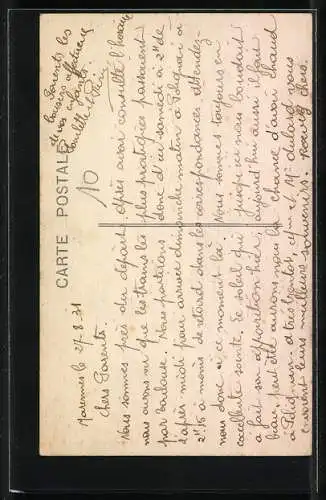 CARTE POSTALE
10
Marennes le 27-8-31
Chers Parents.
Nous sommes près du départ. Après avoir consulté l'horaire
nous avons vu que les trains les plus pratiques passaient
par Toulouse. Nous partirons donc d'ici samedi à 2h de
l'après midi pour arriver dimanche matin à Péligueu à
2h15 à moins de retard dans les correspondances. Attendez-
nous donc à ce moment là. Nous sommes toujours en
excellente santé. Le soleil qui jusqu'ici nous boudait
a fait son apparition hier, aujourd'hui aussi il fait
beau, peut être aurons nous la chance d'avoir chaud
à Péliguen. A très bientôt, et Mme et Mr Aulard vous
envoient leurs meilleurs souvenirs. Recevez chers
Parents les
baisers affectueux
de vos enfants